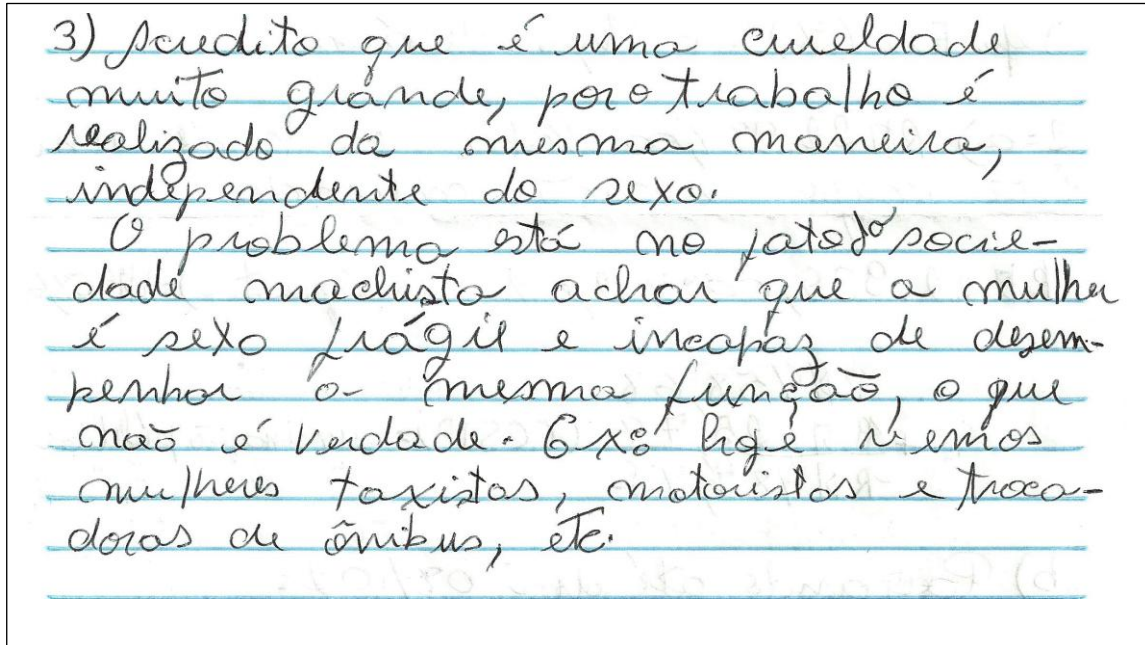 3) Acredito que é uma crueldade
muito grande, por o trabalho é
realizado da mesma maneira,
independente do sexo.
O problema está no fato da socie-
dade machista achar que a mulher
é sexo frágil e incapaz de desem-
penhar a mesma função, o que
não é verdade. Ex: hoje vemos
mulheres taxistas, motoristas e troca-
doras de ônibus, etc.